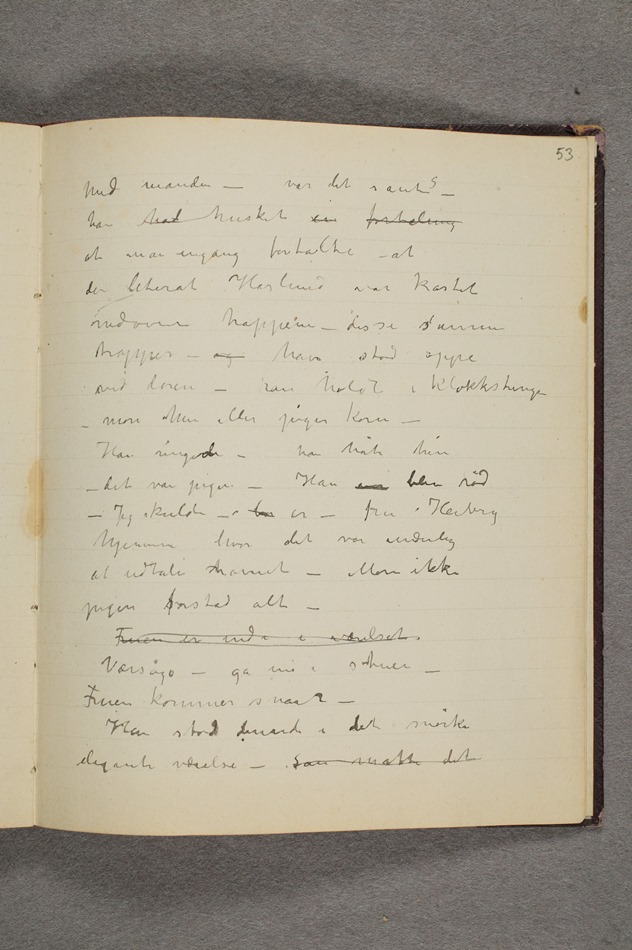 53
med manden — var det sandt?—
han had husket en fortælling
at man engang fortalte – at
den literat Haslund var kastet
nedover trappene – disse samme
trapper – og havn stod oppe
ved døren – han holdt i klokkstrengen
– mon hun eller pigen kom —
Han ringede – han håbte hun
– det var pigen – Han blev rød
– Jeg skulde – er – fru Heiberg
hjemme hvor det var underlig
at udtale navnet – Mon ikke
pigen forstod alt –
Fruen er inde i værelset.
Værsågo – gå ind i stuen –
Fruen kommer snart –
Han stod i det mørke
elegante værelse – Saa matte det